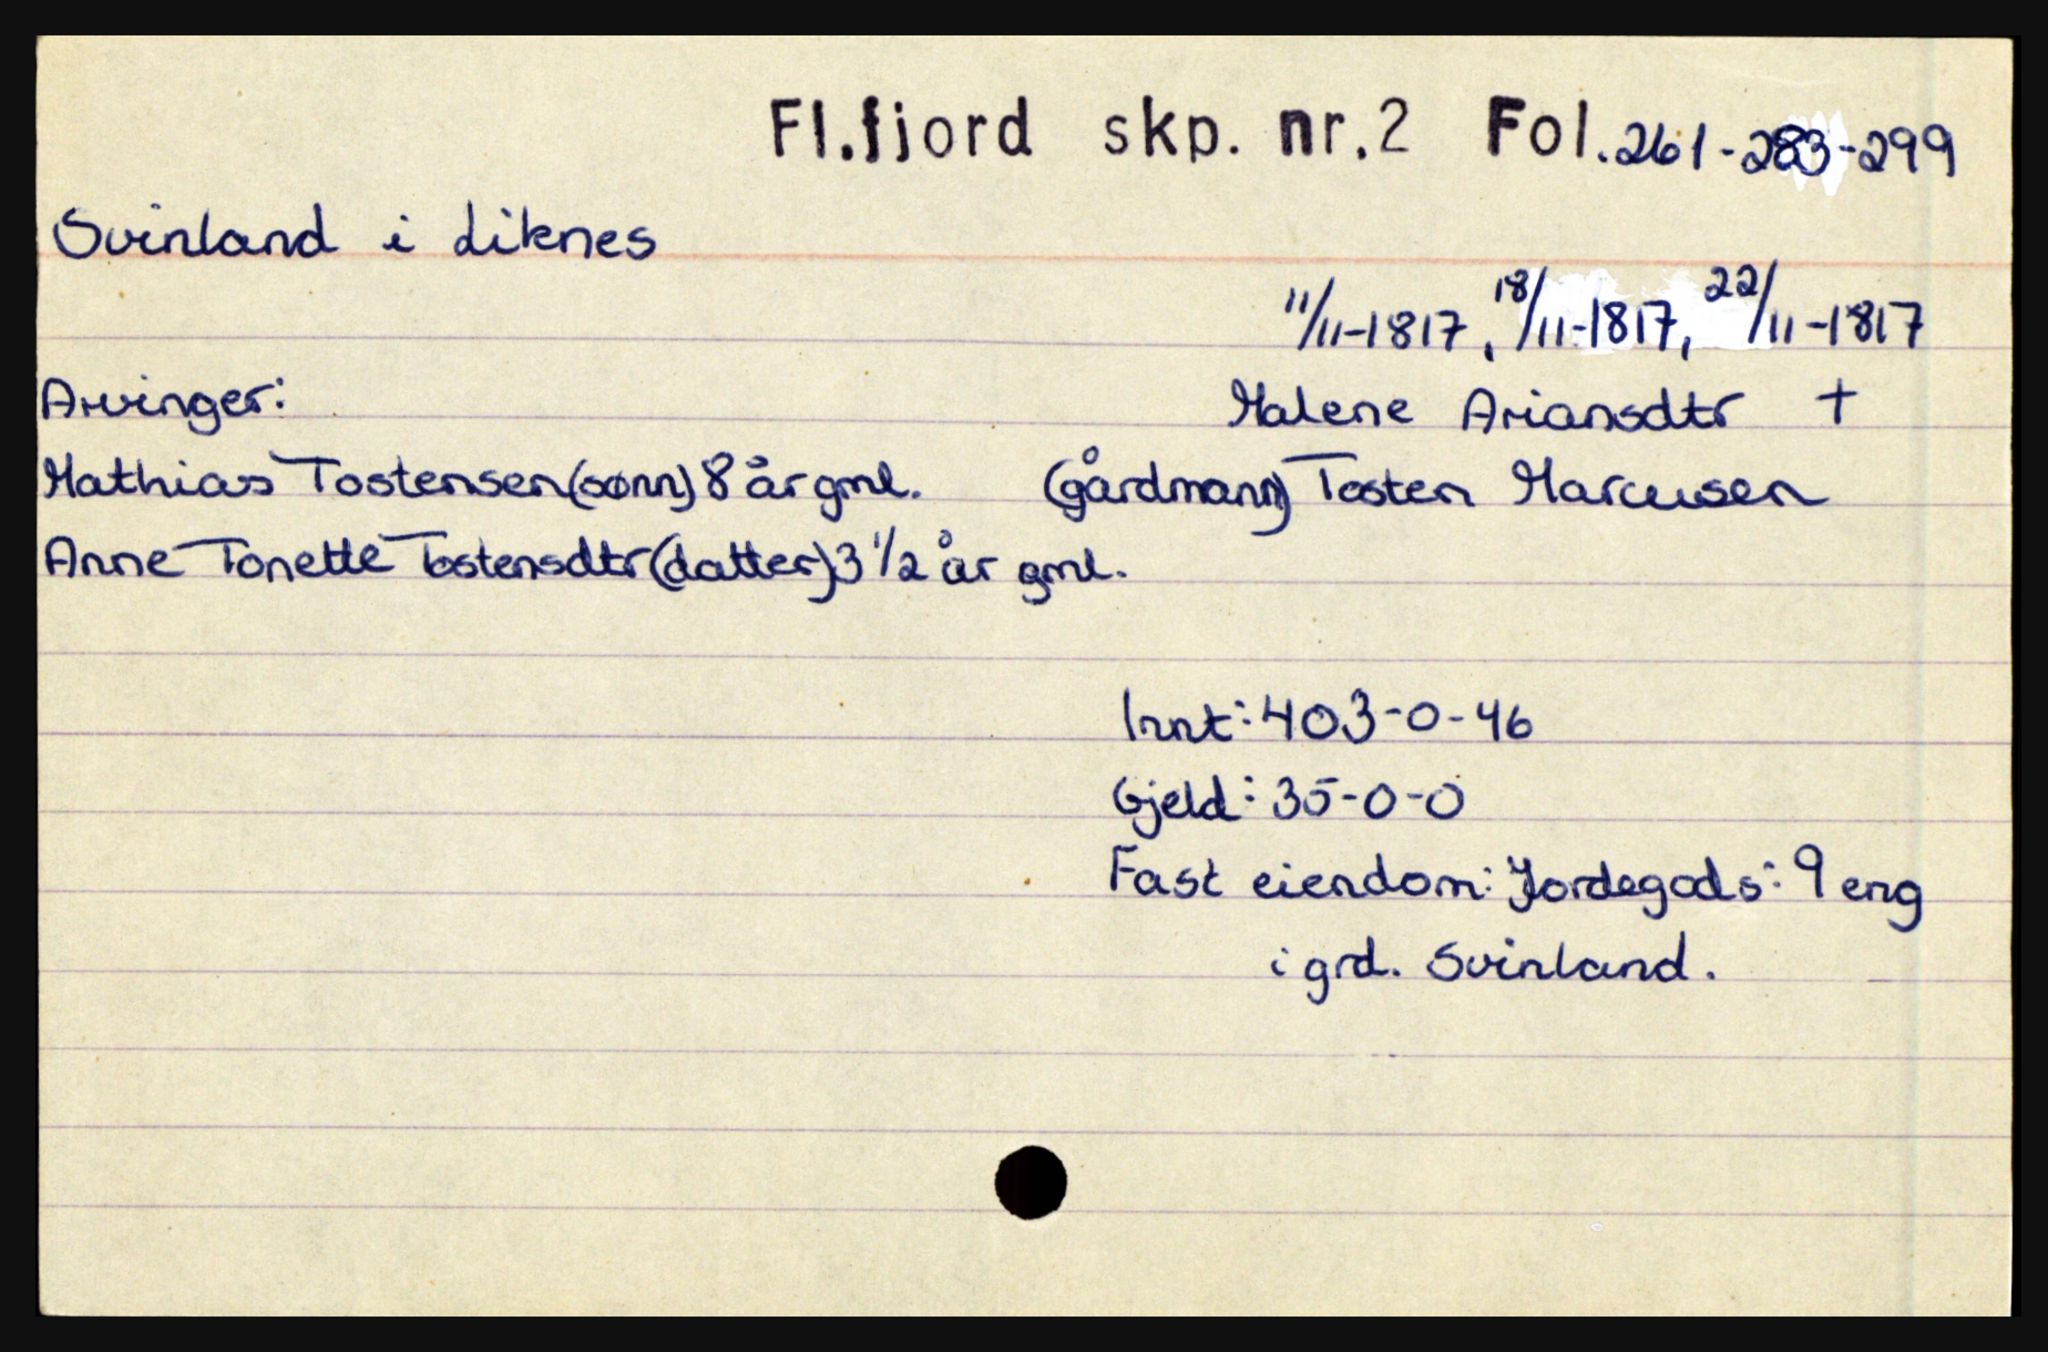 Fl.fjord skp. nr.2 Fol.261-283-299
Svinland i Liknes
11/11-1817, 18/11-1817, 22/11-1817
Arvinger: Malene Ariansdtr +
Mathias Tostensen (sønn) 8 år gml. (gårdmann) Tosten Marcusen
Anne Tonette Tostensdtr (datter) 3 1/2 år gml.
Innt: 403-0-46
Gjeld: 35-0-0
Fast eiendom: Jordegods: 9 eng
i grd. Svinland.